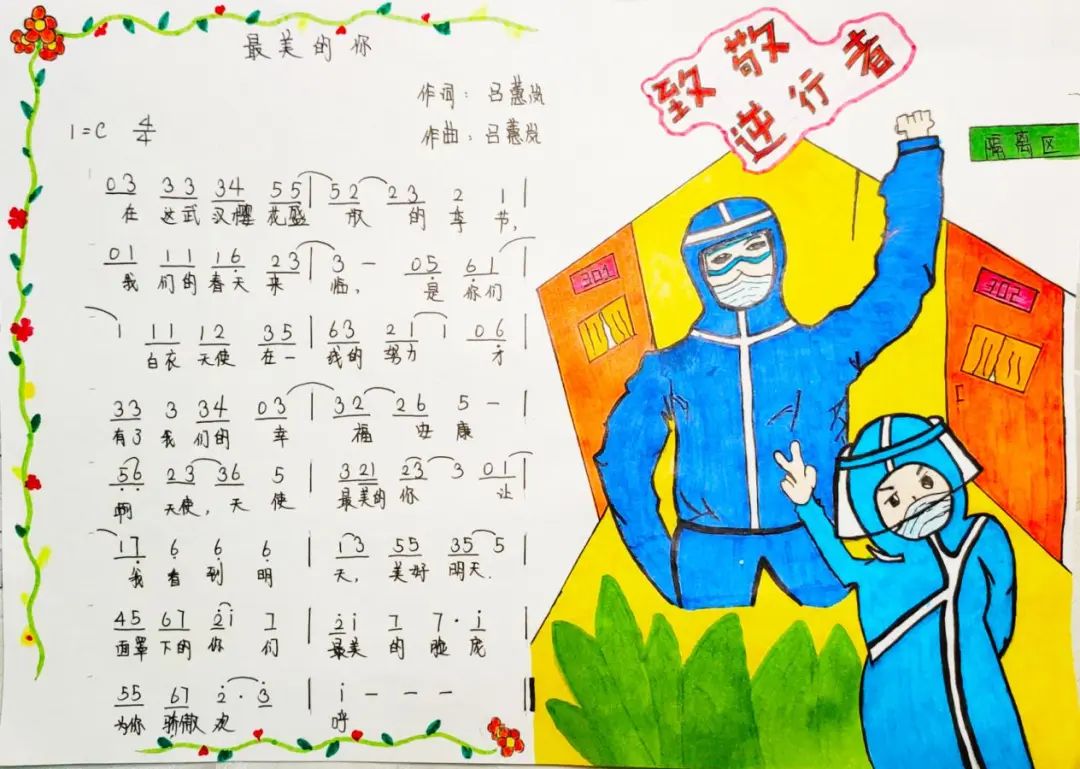 最美的你
作词：吕蕙岚
作曲：吕蕙岚
1=C 4/4
03 33 34 55 | 52 23 2 1 |
在 这武 汉樱 花盛 散 的 季 节，
01 11 16 23 | 3 - 05 61 |
我 们的 春天 来 临， 是 你们
1 11 12 35 | 63 21 1 06 |
白衣 天使 在一 线的 努力 才
33 3 34 03 | 32 26 5 - |
有了 我 们的 幸 福 安 康
56 23 36 5 | 321 23 3 01 |
啊 天使，天 使 最美的 你 让
17 6 6 6 | 13 55 35 5 |
我 看 到 明 天，美好 明天．
45 67 2i 7 | 2i 7 7· i |
面罩 下的 你 们 最美 的 脸 庞
55 67 2· 3 | i - - -
为你 骄傲 欢 呼
致敬
逆行者
隔离区
301
302